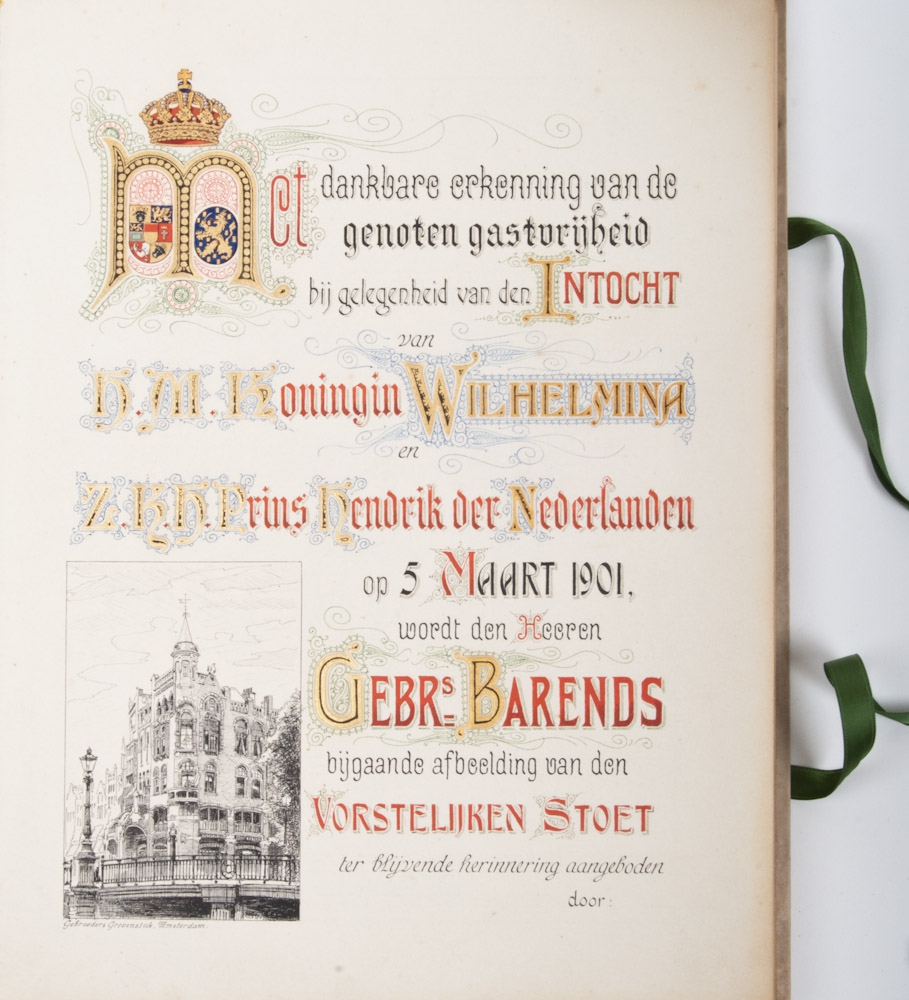 Met dankbare erkenning van de
genoten gastvrijheid
bij gelegenheid van den INTOCHT
van
H.M. Koningin WILHELMINA
en
Z.K.H. Prins Hendrik der Nederlanden
op 5 MAART 1901,
wordt den Heeren
GEBRs BARENDS
bijgaande afbeelding van den
VORSTELIJKEN STOET
ter blijvende herinnering aangeboden
door:
Gebroeders Amsterdam.